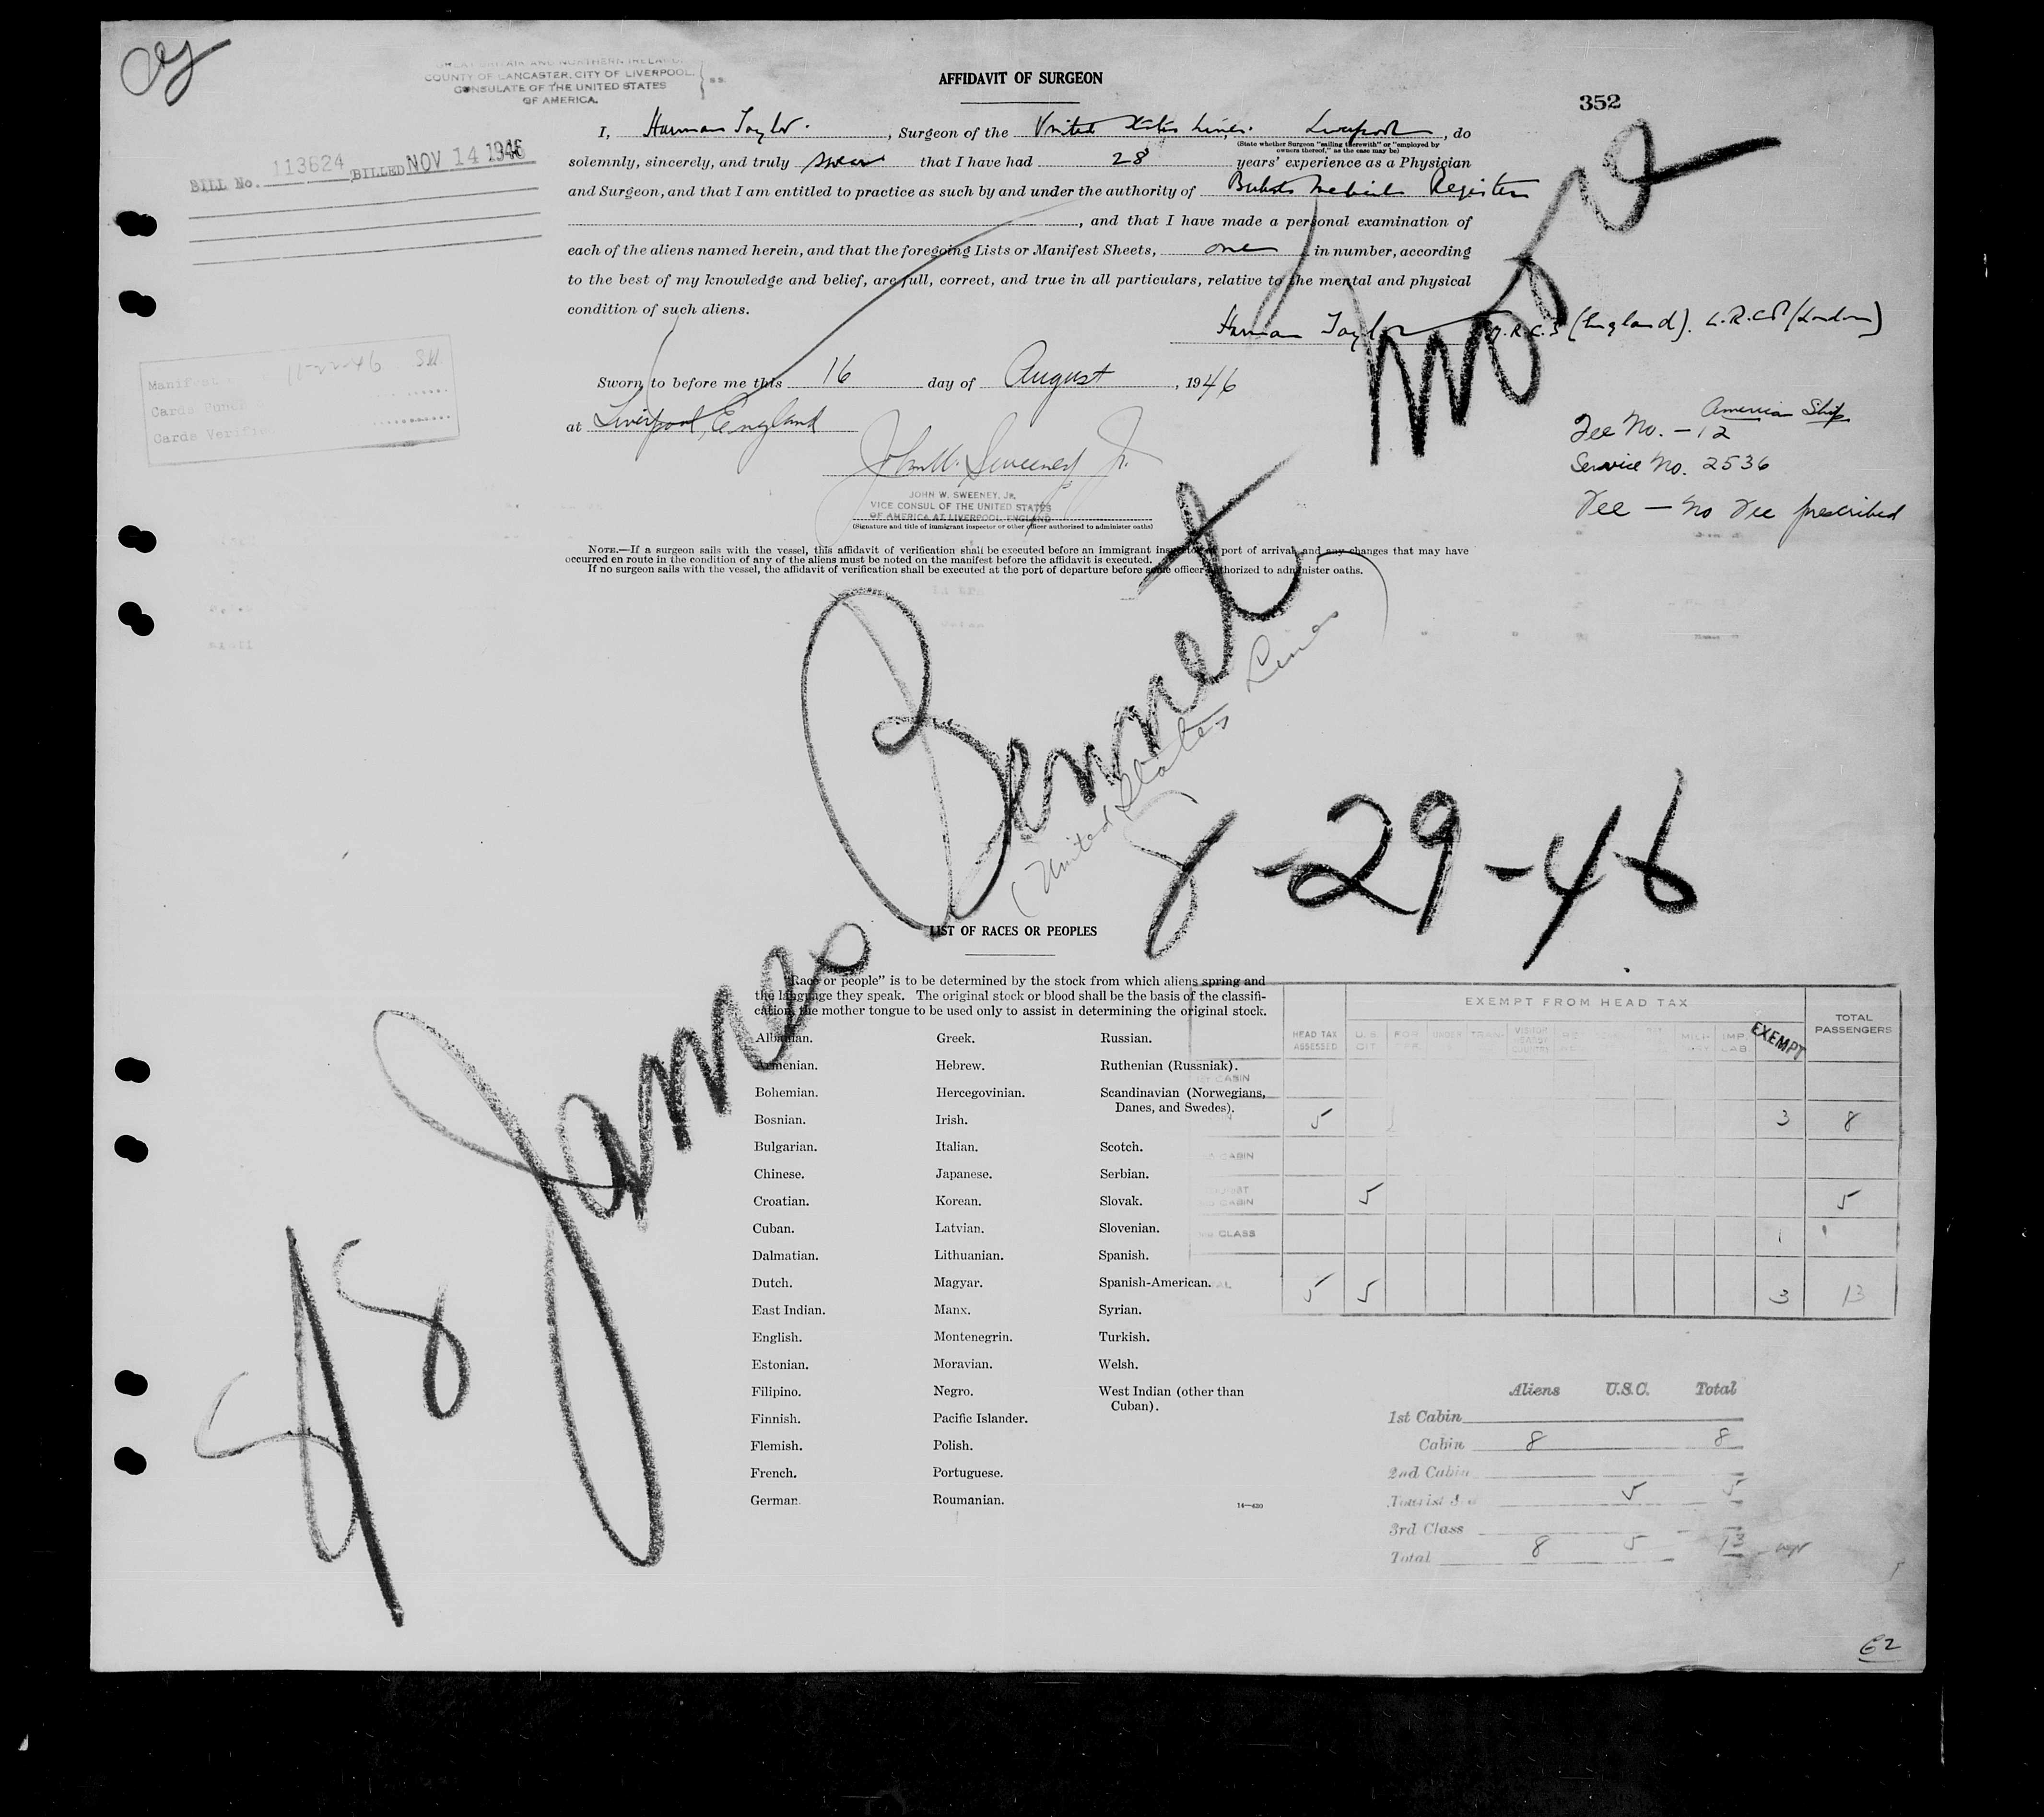 COUNTY OF LANCASTER, CITY OF LIVERPOOL.
CONSULATE OF THE UNITED STATES
OF AMERICA.
ss.
AFFIDAVIT OF SURGEON
352
BILL No. 113624 BILLED NOV 14 1946
I, Harman Taylor, Surgeon of the United States Lines. Liverpool, do
(State whether Surgeon "sailing therewith" or "employed by
owners thereof," as the case may be)
solemnly, sincerely, and truly swear that I have had 28 years' experience as a Physician
and Surgeon, and that I am entitled to practice as such by and under the authority of British Medical Register
, and that I have made a personal examination of
each of the aliens named herein, and that the foregoing Lists or Manifest Sheets, one in number, according
to the best of my knowledge and belief, are full, correct, and true in all particulars, relative to the mental and physical
condition of such aliens.
Harman Taylor M.R.C.S (England). L.R.C.P (London)
Manifest 11-22-46
Cards Punch
Cards Verified
Sworn to before me this 16 day of August, 1946
at Liverpool, England
John W. Sweeney Jr.
JOHN W. SWEENEY, Jr.
VICE CONSUL OF THE UNITED STATES
OF AMERICA AT LIVERPOOL, ENGLAND
(Signature and title of immigrant inspector or other officer authorized to administer oaths)
American Ship
Fee No. - 12
Service No. 2536
Fee - No Fee prescribed
NOTE.—If a surgeon sails with the vessel, this affidavit of verification shall be executed before an immigrant inspector at port of arrival, and any changes that may have
occurred en route in the condition of any of the aliens must be noted on the manifest before the affidavit is executed.
If no surgeon sails with the vessel, the affidavit of verification shall be executed at the port of departure before some officer authorized to administer oaths.
SS James Bennett Moore
(United States Lines)
8-29-46
LIST OF RACES OR PEOPLES
"Race or people" is to be determined by the stock from which aliens spring and
the language they speak. The original stock or blood shall be the basis of the classifi-
cation, the mother tongue to be used only to assist in determining the original stock.
Albanian.
Armenian.
Bohemian.
Bosnian.
Bulgarian.
Chinese.
Croatian.
Cuban.
Dalmatian.
Dutch.
East Indian.
English.
Estonian.
Filipino.
Finnish.
Flemish.
French.
German.
Greek.
Hebrew.
Hercegovinian.
Irish.
Italian.
Japanese.
Korean.
Latvian.
Lithuanian.
Magyar.
Manx.
Montenegrin.
Moravian.
Negro.
Pacific Islander.
Polish.
Portuguese.
Roumanian.
Russian.
Ruthenian (Russniak).
Scandinavian (Norwegians,
Danes, and Swedes).
Scotch.
Serbian.
Slovak.
Slovenian.
Spanish.
Spanish-American.
Syrian.
Turkish.
Welsh.
West Indian (other than
Cuban).
14—430
EXEMPT FROM HEAD TAX
HEAD TAX ASSESSED U.S. CIT. FOR UNDER MILI- IMP. LAB. EXEMPT TOTAL PASSENGERS
CABIN
5 3 8
CABIN
CABIN 5 5
CLASS 1
5 5 3 13
Aliens U.S.C. Total
1st Cabin
Cabin 8 8
2nd Cabin
Tourist 5 5
3rd Class
Total 8 5 13
62